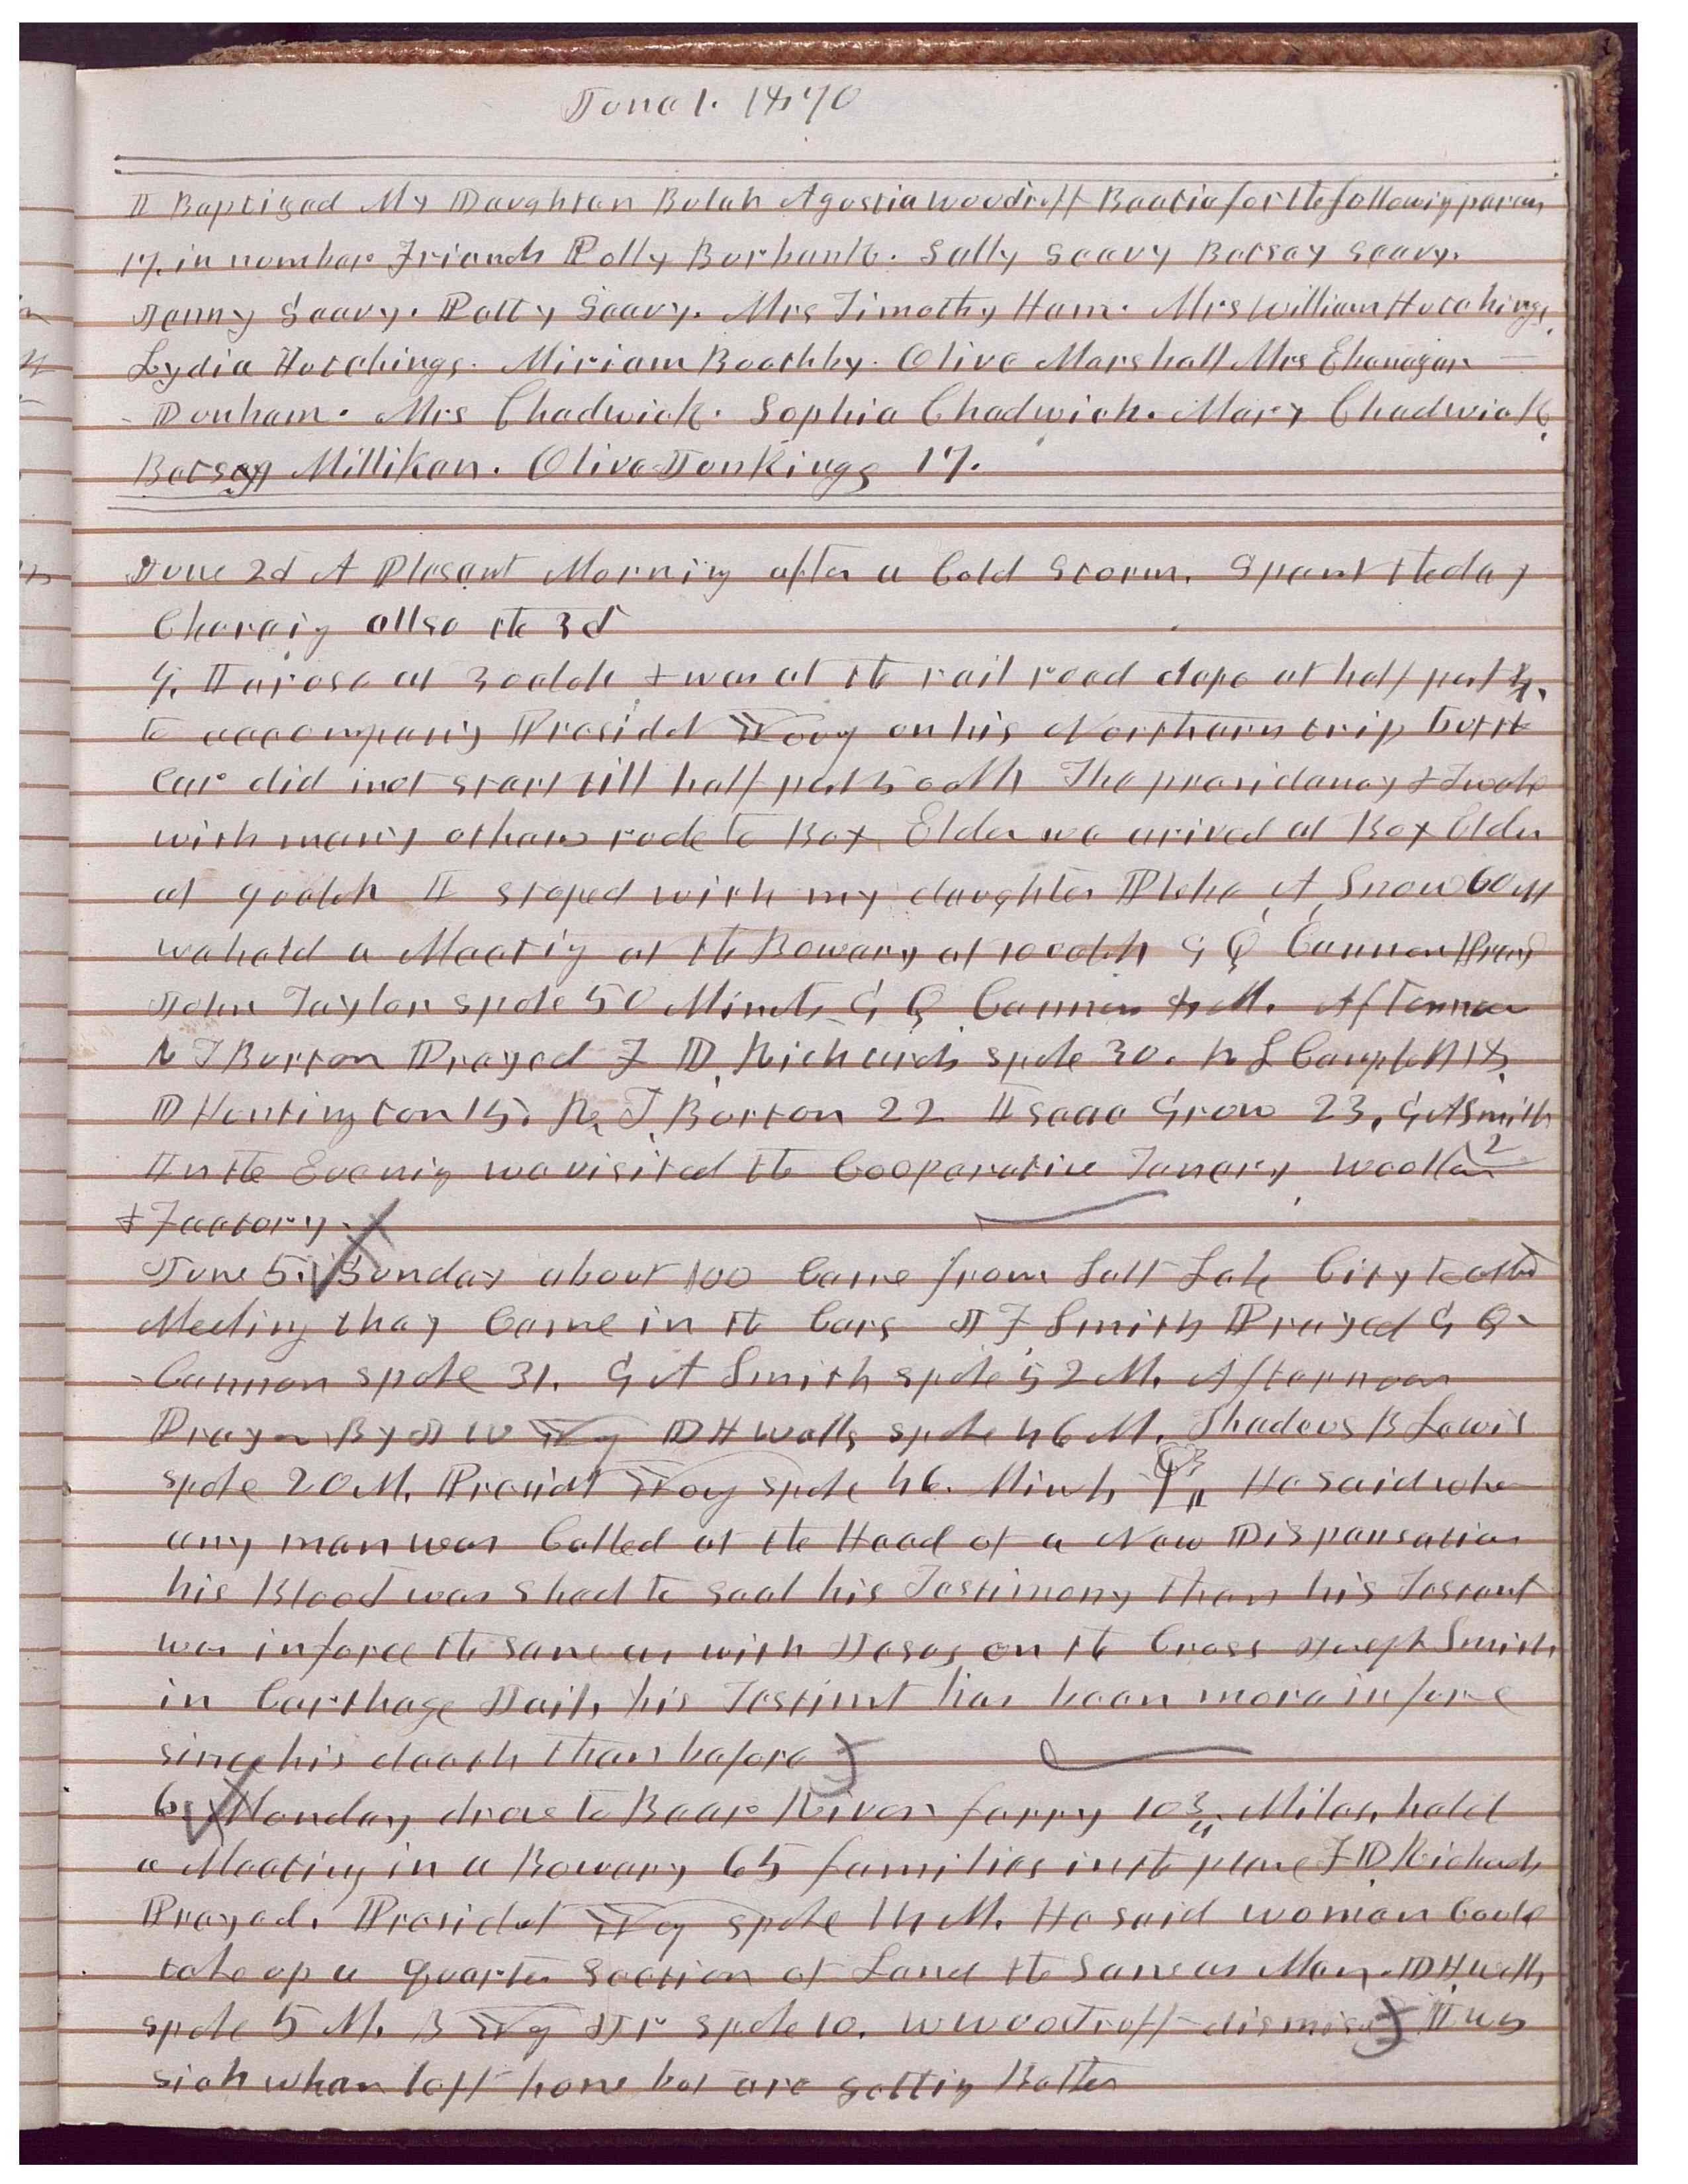 June 1. 1870
I Baptized My Daughter Bulah Agustia Woodruff Beatie for the following persons
17. in number Friends Polly Burbank. Sally Seavy Betsey Seavy.
Jenny Seavy. Polly Seavy. Mrs Timothy Ham. Mrs William Hutchings,
Lydia Hutchings. Miriam Boothby. Olive Marshall Mrs Ebenezer
Dunham. Mrs Chadwick. Sophia Chadwick. Mary Chadwick
Betsey Milliken. Olive Jenkings 17.
June 2d A Plesant Morning after a Cold Storm. Spent the day
Choreing allso the 3d
4. I arose at 3 oclok & was at the rail road depo at half past 4.
to accompany Presidet Young on his Northern trip but the
Car did not start till half past 5 oclok The presidency & Twelve
with many others rode to Box Elder we arived at Box Elder
at 9 oclok I stoped with my daughter Phebe A Snow 60 M
we held a Meeting at the Bowery at 10 oclok G Q Cannon Prayed
John Taylor spoke 50 Minuts G Q Cannon M. Afternoon
R T Burton Prayed F D Richards spoke 30. R L Campbell 18
D Huntington 15. R. T. Burton 22 Isaac Grow 23. G A Smith 2
In the Evenig we visited the Cooperative Tanery, Woollen
& Factory.
June 5. Sunday about 100 Came from Salt Lake City to attend
Meeting they Came in the Cars J F Smith Prayed G Q
Cannon spoke 31. G A Smith spoke 52 M. Afternoon
Prayer By J W Young D H Wells spoke 46 M. Thadeus B Lewis
spoke 20 M. Presidt Young spoke 46. Minuts He said when
any man was Called at the Head of a New Dispensation
his Blood was shed to seal his Testimony then his Testamt
was in force the same as with Jesus on the Cross Joseph Smith
in Carthage Jail, his Testimt has been more in force
since his death than before
6. Monday drove to Bear River ferry 10 3/4 Miles, held
a Meeting in a Bowery 65 families in the place F D Richards
Prayed. Presidet Young spoke 14 M. He said women Could
take up a quarter Section of Land the same as Men. D H Wells
spoke 5 M. B Young Jr spoke 10. W Woodruff dismised I was
sick when left home but are getting Better